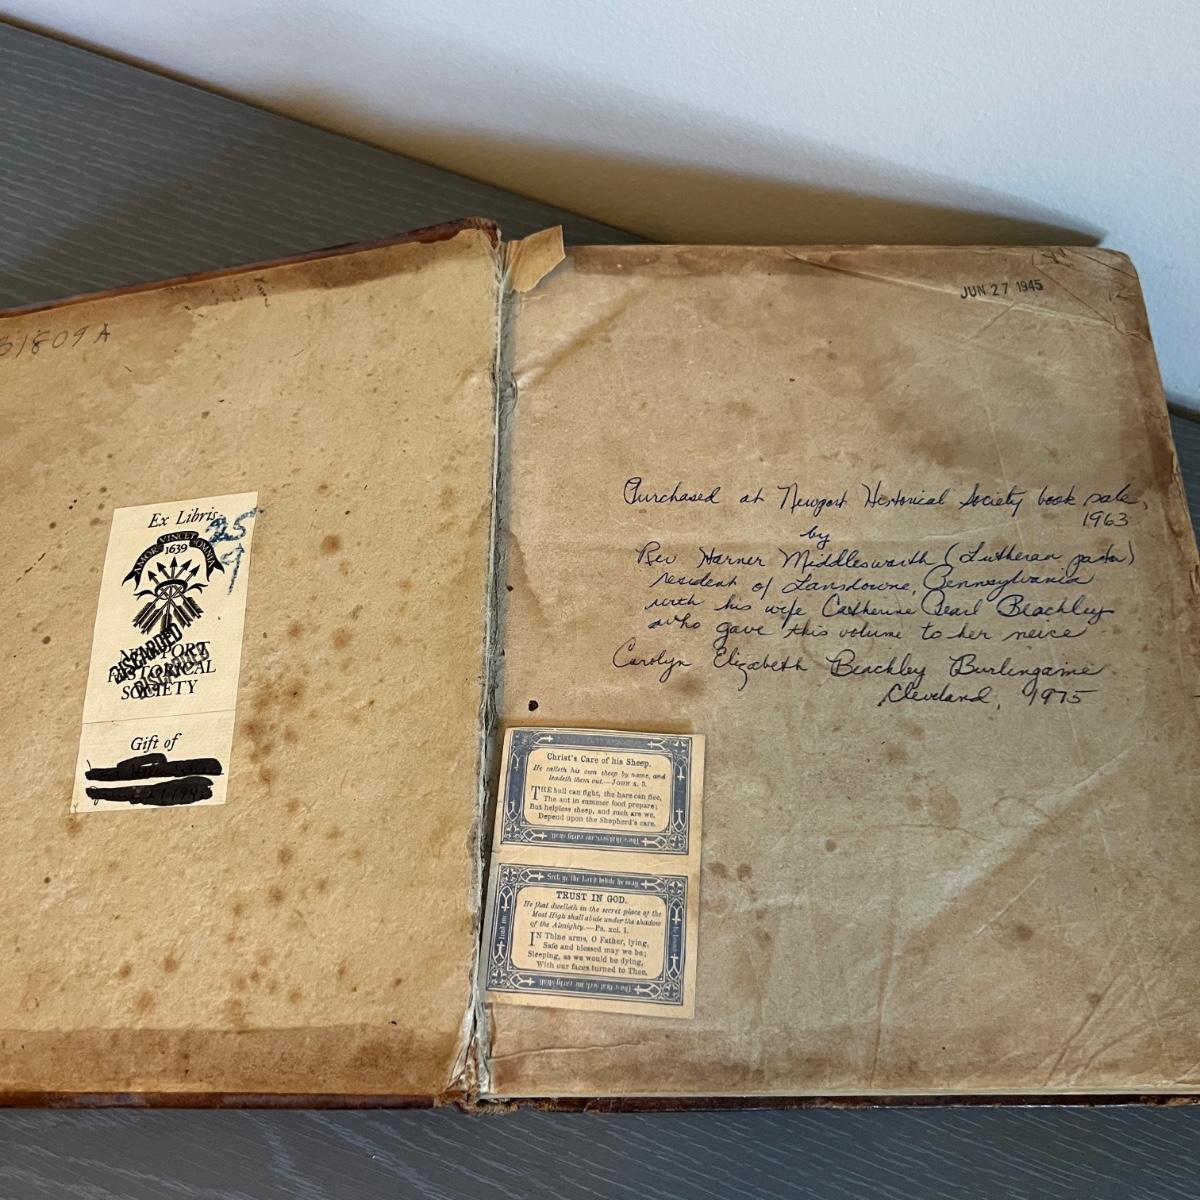 31809A
Ex Libris
25
AMOR VINCET OMNIA
1639
DISCARDED
DISCARDED
NEWPORT
HISTORICAL
SOCIETY
Gift of
JUN 27 1945
Purchased at Newport Historical Society book sale,
1963
by
Rev Harner Middleswarth (Lutheran pastor)
resident of Lansdowne, Pennsylvania
with his wife Catherine Pearl Beachley
who gave this volume to her neice
Carolyn Elizabeth Beachley Burlingame
Cleveland, 1975
Christ's Care of his Sheep.
He calleth his own sheep by name, and
leadeth them out.—John x. 3.
THE bull can fight, the hare can flee,
The ant in summer food prepare;
But helpless sheep, and such are we,
Depend upon the Shepherd's care.
Those that seek me early shall
Seek ye the Lord while he may
TRUST IN GOD.
He that dwelleth in the secret place of the
Most High shall abide under the shadow
of the Almighty.—Ps. xci. 1.
IN Thine arms, O Father, lying,
Safe and blessed may we be;
Sleeping, as we would be dying,
With our faces turned to Thee.
find me
be found
Those that seek me early shall